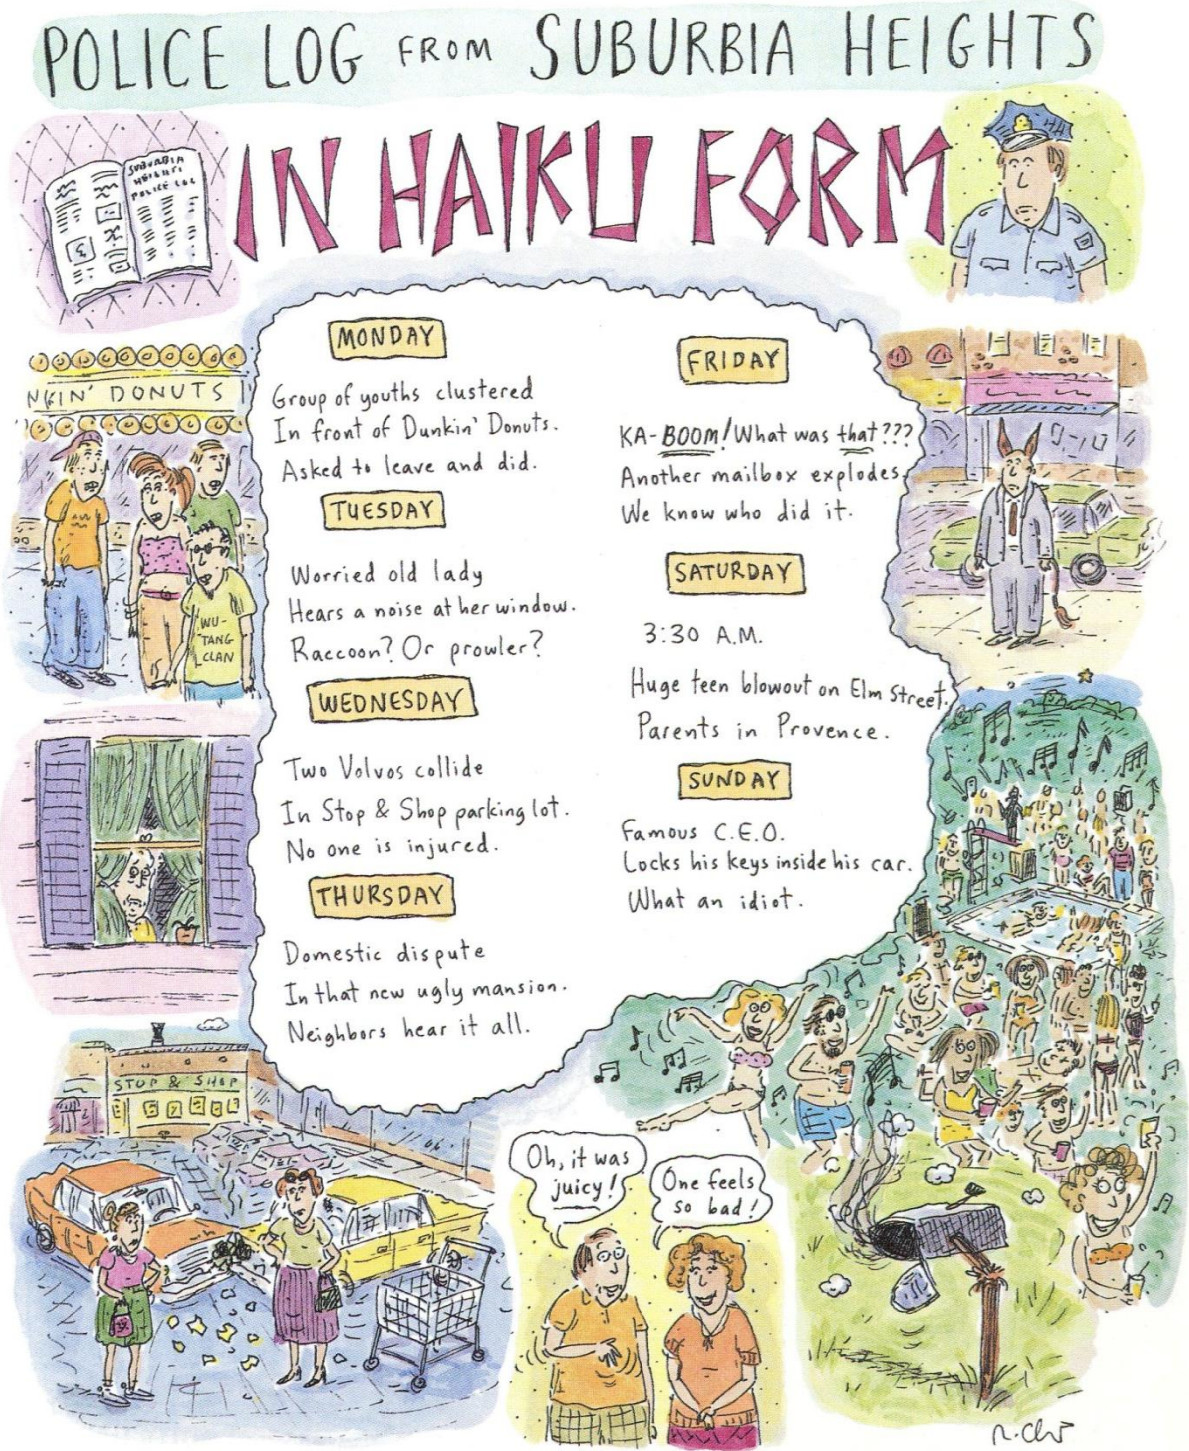 POLICE LOG FROM SUBURBIA HEIGHTS
IN HAIKU FORM
SUBURBIA
HEIGHTS
POLICE LOG
MONDAY
Group of youths clustered
In front of Dunkin' Donuts.
Asked to leave and did.
TUESDAY
Worried old lady
Hears a noise at her window.
Raccoon? Or prowler?
WEDNESDAY
Two Volvos collide
In Stop & Shop parking lot.
No one is injured.
THURSDAY
Domestic dispute
In that new ugly mansion.
Neighbors hear it all.
FRIDAY
KA-BOOM! What was that???
Another mailbox explodes.
We know who did it.
SATURDAY
3:30 A.M.
Huge teen blowout on Elm Street.
Parents in Provence.
SUNDAY
Famous C.E.O.
Locks his keys inside his car.
What an idiot.
NKIN' DONUTS
WU-
TANG
CLAN
STOP & SHOP
Oh, it was
juicy!
One feels
so bad!
R. Chast